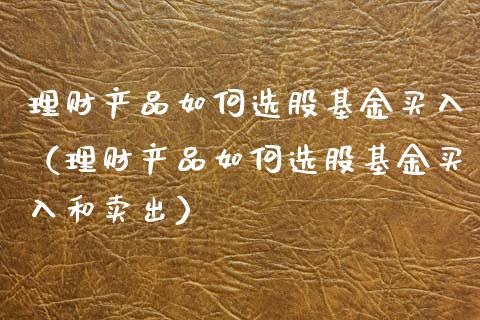 理财产品如何选股基金买入
（理财产品如何选股基金买
入和卖出）